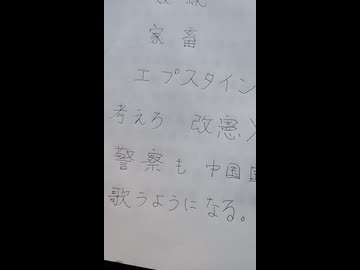 家畜
エプスタイン
考えろ 改憲
警察も 中国
歌うようになる。